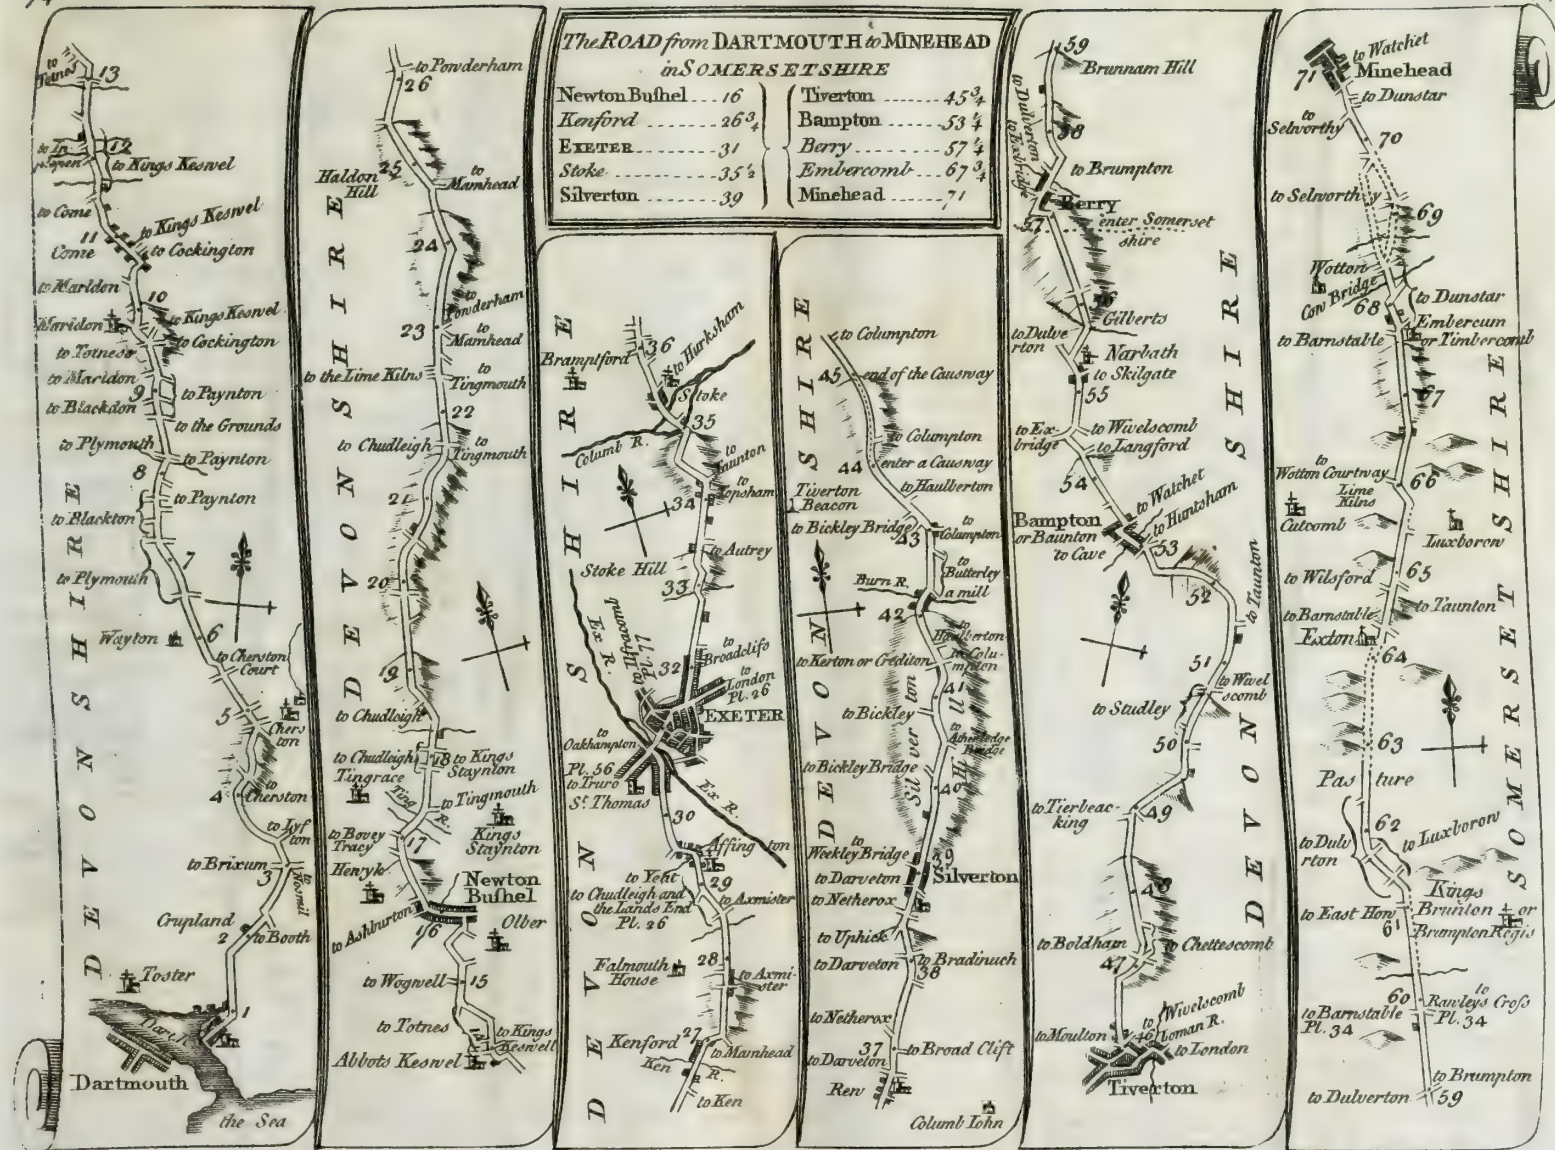 The ROAD from DARTMOUTH to MINEHEAD
in SOMERSETSHIRE
Newton Buſhel ... 16
Kenford ........ 26 3/4
EXETER ........ 31
Stoke ........ 35 1/2
Silverton ..... 39
Tiverton ....... 45 3/4
Bampton ....... 53 1/4
Berry ....... 57 1/4
Embercomb .. 67 3/4
Minehead ..... 71
to Totnes
13
12
to Kings Keswel
to Come
to Kings Keswel
11
Come
to Cockington
to Maridon
10
to Kings Keswel
Maridon
to Cockington
to Totness
to Maridon
9
to Paynton
to Blackdon
to the Grounds
to Plymouth
to Paynton
8
to Paynton
to Blackton
7
to Plymouth
Wayton
6
to Cherston
Court
5
Chers
ton
4
to Cherston
to Lyf
ton
to Brixum
3
to Nosmil
Crupland
2
to Booth
Toster
1
Dart R.
Dartmouth
the Sea
DEVONSHIRE
to Powderham
26
25
Haldon
Hill
to
Mamhead
24
to
Powderham
23
to
Mamhead
to the Lime Kilns
to
Tingmouth
22
to Chudleigh
to
Tingmouth
21
20
19
to Chudleigh
to Chudleigh
18
to Kings
Staynton
Tingrace
Ting
R.
to Tingmouth
to Bovey
Tracy
17
Kings
Staynton
Henryk
Newton
Buſhel
to Ashburton
16
Olber
to Wogwell
15
to Totnes
to Kings
Keswell
14
Abbots Keswel
DEVONSHIRE
36
to Hurksham
Bramptford
Stoke
35
Columb R.
to
Taunton
to
Topsham
34
to Autrey
Stoke Hill
33
Ex R.
to Ilfracomb
Pl. 77
to
Broadclifs
32
to
London
Pl. 26
EXETER
to
Oakhampton
Pl. 56
to Truro
St. Thomas
Ex R.
30
Affing ton
to Yeht
29
to Chudleigh and
the Lands End
Pl. 26
to Axmister
28
Falmouth
House
to Axmi-
ster
Kenford
27
to Mamhead
Ken
R.
to Ken
DEVONSHIRE
to Columpton
45
end of the Causway
to Columpton
44
enter a Causway
Tiverton
Beacon
to Haulberton
to Bickley Bridge
43
to
Columpton
to
Butterley
Burn R.
a mill
42
to
Haulberton
to Kerton or Crediton
to Colu-
mpton
41
to Bickley
to
Atheredge
Bridge
to Bickley Bridge
40
Silver ton
Hills
to
Weekley Bridge
39
to Darveton
Silverton
to Netherox
to Uphick
to Darveton
to Bradinuch
38
to Netherox
37
to Broad Clift
to Darveton
Rew
Columb Iohn
DEVONSHIRE
59
Brunnam Hill
to Dulverton
to Exbridge
58
to Brumpton
Berry
57
enter Somerset
shire
56
Gilberts
to Dulve
rton
Narbath
to Skilgate
55
to Ex-
bridge
to Wivelscomb
to Langford
54
to Watchet
to Huntsham
Bampton
or Baunton
to Cave
53
52
to Taunton
51
to Wivel
scomb
to Studley
50
to Tierbeac-
king
49
48
to Boldham
to Chettescomb
47
to Wivelscomb
Loman R.
to Moulton
46
to London
Tiverton
DEVONSHIRE
to Watchet
71
Minehead
to Dunstar
to
Selworthy
70
to Selworthy
69
Wotton
Cow Bridge
68
to Dunstar
to Barnstable
Embercum
or Timbercomb
67
to
Wotton Courtway
66
Lime
Kilns
Cutcomb
Luxborow
to Wilsford
65
to Barnstable
to Taunton
Exton
64
63
Pas ture
62
to Luxborow
to Dulv
rton
Kings
Brunton or
Brumpton Regis
to East How
61
60
to
Rawleys Cross
Pl. 34
to Barnstable
Pl. 34
to Brumpton
to Dulverton
59
SOMERSETSHIRE